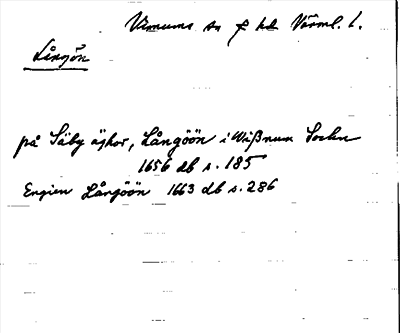 Visnums sn f hd Värml. l.
Långön
på Säby äghor, Långöön i Wißnum Sochn
1656 db s. 185
Engien Långöön 1663 db s. 286